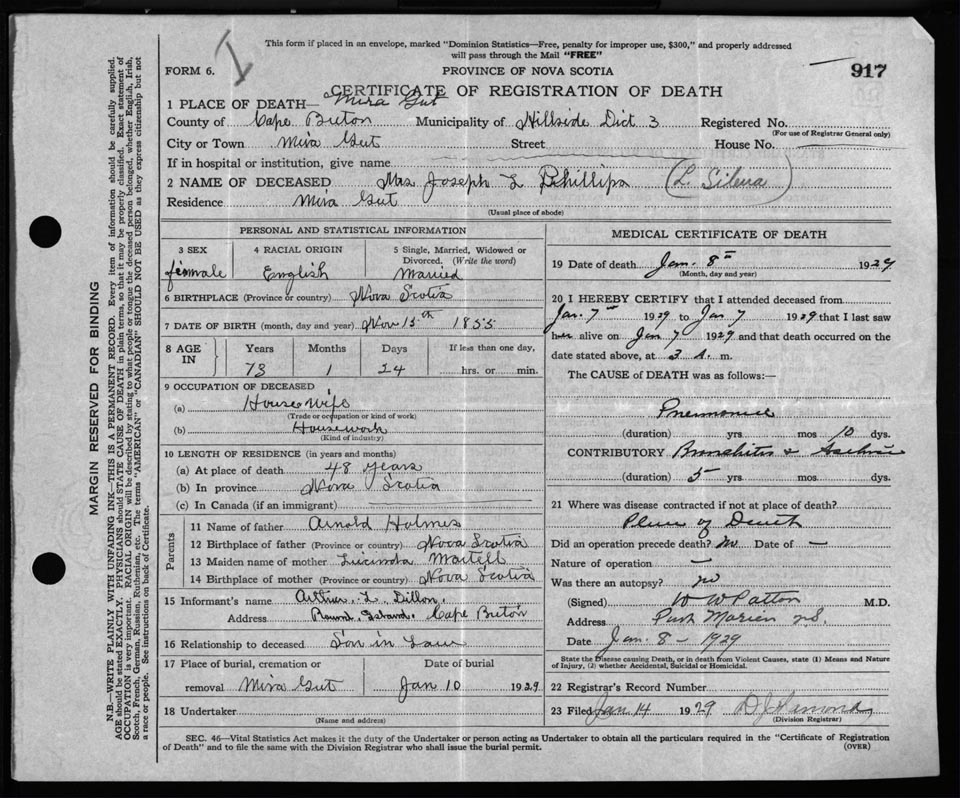 This form if placed in an envelope, marked "Dominion Statistics—Free, penalty for improper use, $300," and properly addressed
will pass through the Mail "FREE"
FORM 6. PROVINCE OF NOVA SCOTIA 917
CERTIFICATE OF REGISTRATION OF DEATH
1 PLACE OF DEATH— Mira Gut
County of Cape Breton Municipality of Hillside Dist 3 Registered No.
(For use of Registrar General only)
City or Town Mira Gut Street House No.
If in hospital or institution, give name
2 NAME OF DECEASED Mrs Joseph L Phillips (L. Silena)
Residence Mira Gut
(Usual place of abode)
PERSONAL AND STATISTICAL INFORMATION
3 SEX 4 RACIAL ORIGIN 5 Single, Married, Widowed or
Divorced. (Write the word)
female English Married
6 BIRTHPLACE (Province or country) Nova Scotia
7 DATE OF BIRTH (month, day and year) Nov 15th 1855
8 AGE IN Years Months Days If less than one day,
73 1 24 hrs. or min.
9 OCCUPATION OF DECEASED
(a) Housewife
(Trade or occupation or kind of work)
(b) Housework
(Kind of industry)
10 LENGTH OF RESIDENCE (in years and months)
(a) At place of death 48 years
(b) In province Nova Scotia
(c) In Canada (if an immigrant)
Parents
11 Name of father Arnold Holmes
12 Birthplace of father (Province or country) Nova Scotia
13 Maiden name of mother Lucinda Martell
14 Birthplace of mother (Province or country) Nova Scotia
15 Informant's name Arthur L. Dillon
Address Round Island, Cape Breton
16 Relationship to deceased Son in Law
17 Place of burial, cremation or Date of burial
removal Mira Gut Jan 10 1929
18 Undertaker
(Name and address)
MEDICAL CERTIFICATE OF DEATH
19 Date of death Jan. 8th 1929
(Month, day and year)
20 I HEREBY CERTIFY that I attended deceased from
Jan. 7 1929 to Jan 7 1929 that I last saw
her alive on Jan 7 1929 and that death occurred on the
date stated above, at 3 A. m.
The CAUSE of DEATH was as follows:—
Pneumonia
(duration) yrs mos 10 dys.
CONTRIBUTORY Bronchitis &
(duration) 5 yrs mos dys.
21 Where was disease contracted if not at place of death?
Place of Death
Did an operation precede death? No Date of —
Nature of operation —
Was there an autopsy? no
(Signed) W W Patton M.D.
Address Port Morien N.S.
Date Jan. 8 - 1929
State the Disease causing Death, or in death from Violent Causes, state (1) Means and Nature
of Injury, (2) whether Accidental, Suicidal or Homicidal.
22 Registrar's Record Number
23 Filed Jan 14 1929
(Division Registrar)
SEC. 46—Vital Statistics Act makes it the duty of the Undertaker or person acting as Undertaker to obtain all the particulars required in the "Certificate of Registration
of Death" and to file the same with the Division Registrar who shall issue the burial permit. (OVER)
MARGIN RESERVED FOR BINDING
N.B.—WRITE PLAINLY WITH UNFADING INK—THIS IS A PERMANENT RECORD. Every item of information should be carefully supplied.
AGE should be stated EXACTLY. PHYSICIANS should STATE CAUSE OF DEATH in plain terms, so that it may be properly classified. Exact statement of
OCCUPATION is very important. RACIAL ORIGIN will be described by stating to what people or tongue the deceased person belonged, whether English, Irish,
Scotch, French, German, Russian, Ruthenian, etc. The terms "AMERICAN" or "CANADIAN" SHOULD NOT BE USED as they express citizenship but not
a race or people. See instructions on back of Certificate.